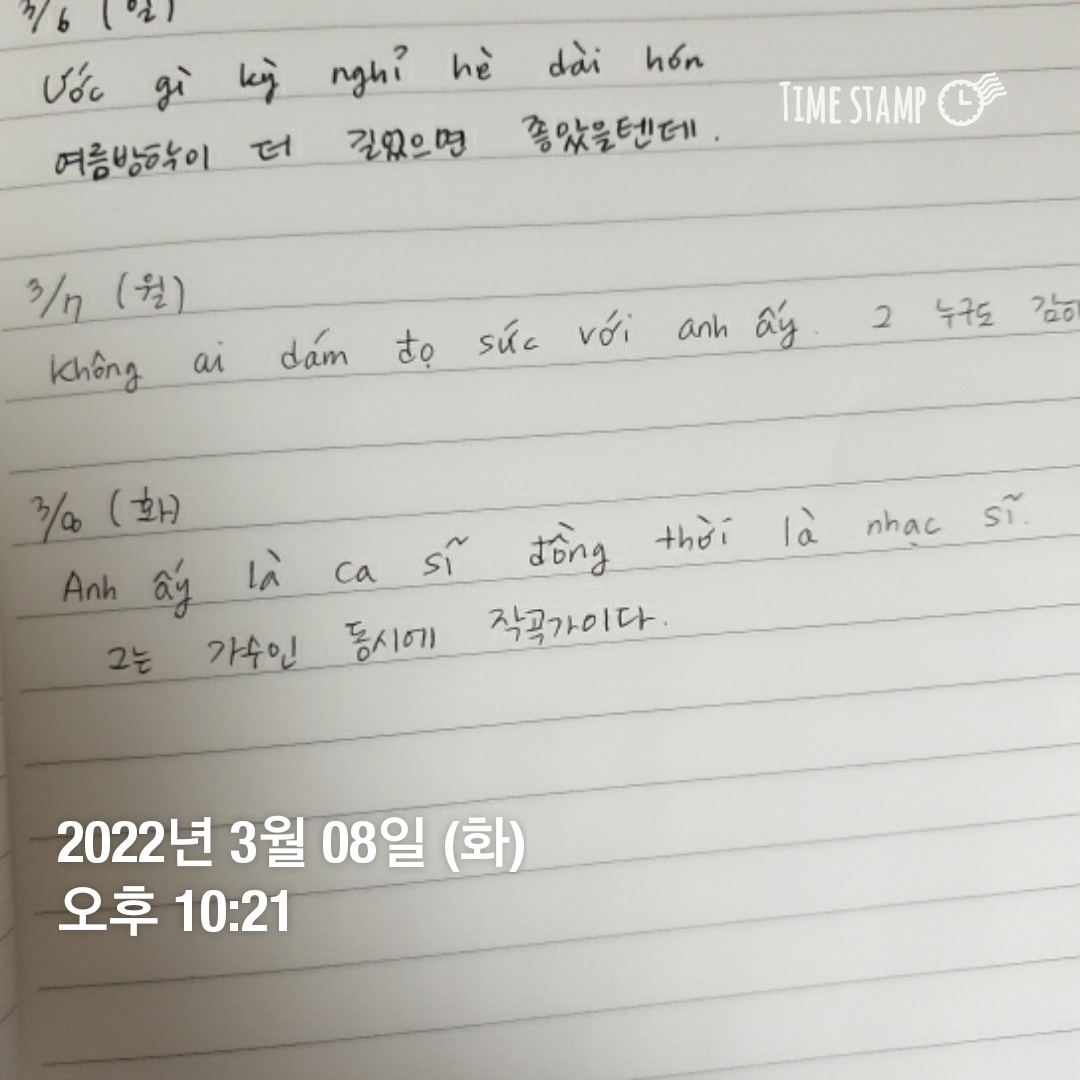 3/6 (일)
Ước gì kỳ nghỉ hè dài hón
TIME STAMP
여름방학이 더 길었으면 좋았을텐데.
3/7 (월)
Không ai dám đọ sức với anh ấy. 그 누구도 감히
3/8 (화)
Anh ấy là ca sĩ đồng thời là nhạc sĩ.
그는 가수인 동시에 작곡가이다.
2022년 3월 08일 (화)
오후 10:21